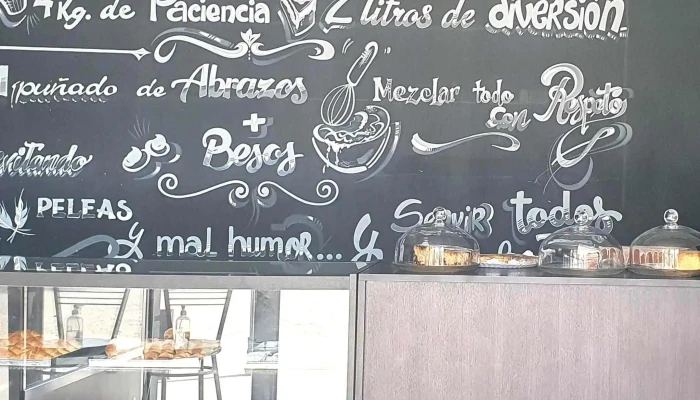 4 Kg. de Paciencia
2 litros de diversión
1 puñado de Abrazos
+
Besos
Mezclar todo
con Respeto
PELEAS
y mal humor...
y Servir todos